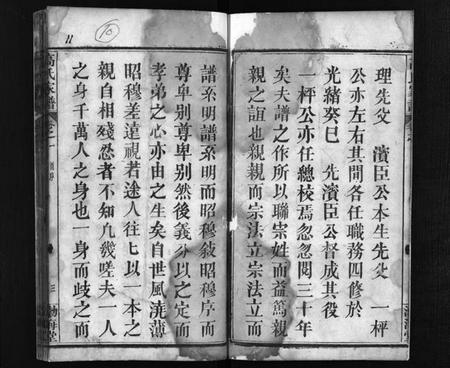 理先父　濱臣公本生先父　一枰
公亦左右其間各任職務四修於
光緒癸巳　先濱臣公督成其役
一枰公亦任總校焉忽忽閱三十年
矣夫譜之作所以聯宗姓而益篤親
親之誼也親親而宗法立宗法立而
譜系明譜系明而昭穆敍昭穆序而
尊卑别尊卑别然後義 以之定而
孝弟之心亦由之生矣自世風澆薄
昭穆差遠視若途人往匕以一本之
親自相殘忍者不知凡幾嗟夫一人
之身千萬人之身也一身而歧之而
高氏家譜
卷一
三
渤海堂
11
10